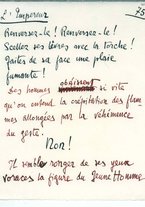 L'Empereur
75
Renversez-le ! Renversez-le !
Scellez ses lèvres avec la torche !
Faites de sa face une plaie
fumante !
Des hommes obéissent si vite
qu'on entend la crépitation des flam-
mes allongées par la véhémence
du geste.
Non !
Il semble ronger de ses yeux
voraces la figure du Jeune Homme